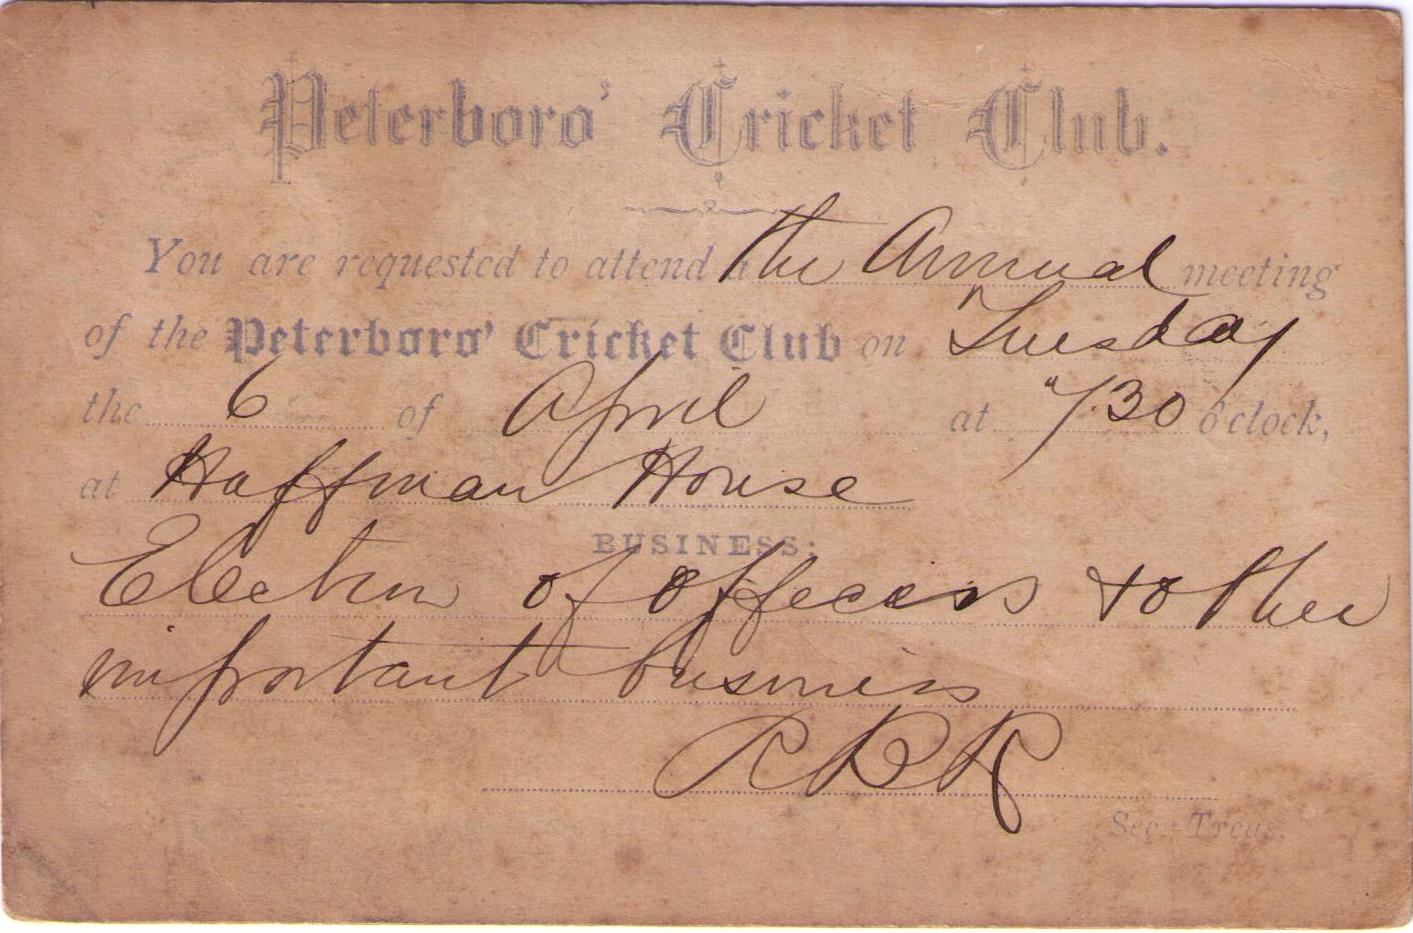 Peterboro' Cricket Club.
You are requested to attend the Annual meeting
of the Peterboro' Cricket Club on Tuesday
the 6 of April at 7.30 o'clock,
at Huffman House
BUSINESS:
Election of officers + other
important business
RBR
Sec.-Treas.